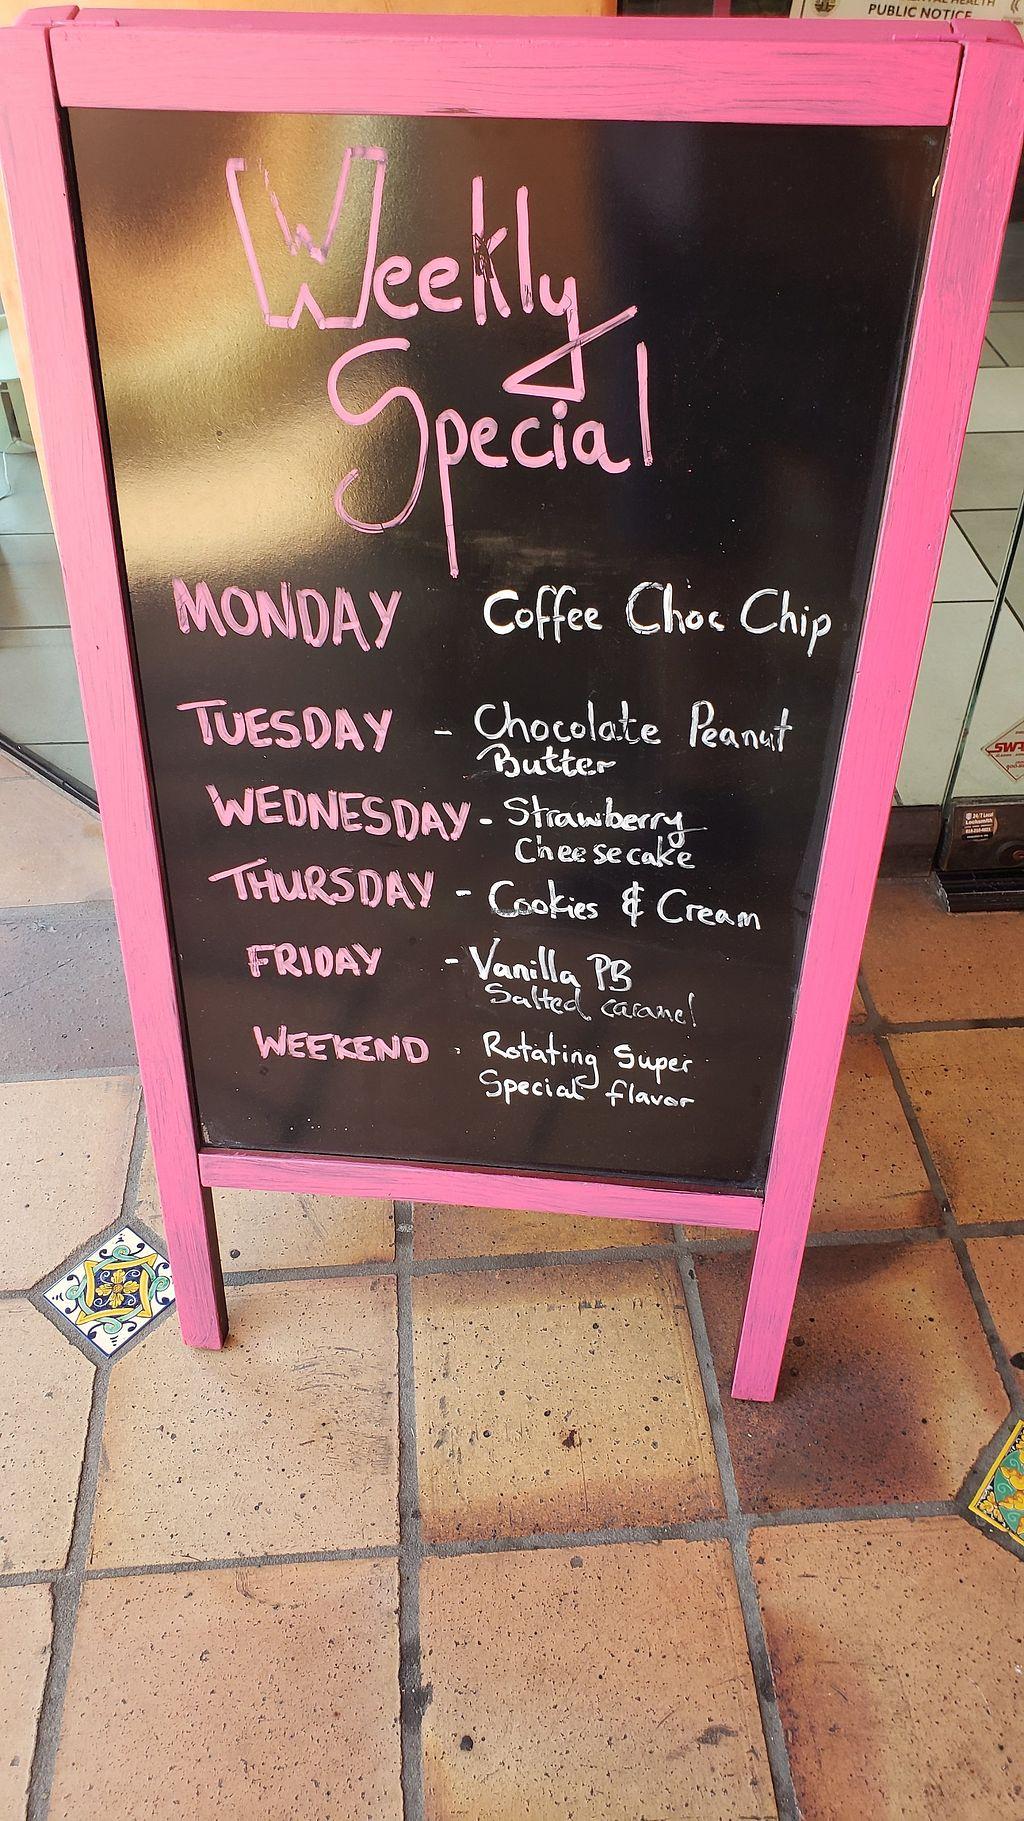 PUBLIC NOTICE
Weekly
Special
MONDAY Coffee Choc Chip
TUESDAY - Chocolate Peanut
Butter
WEDNESDAY - Strawberry
Cheesecake
THURSDAY - Cookies & Cream
FRIDAY - Vanilla PB
Salted caramel
WEEKEND - Rotating Super
Special flavor
24/7 Local
Locksmith